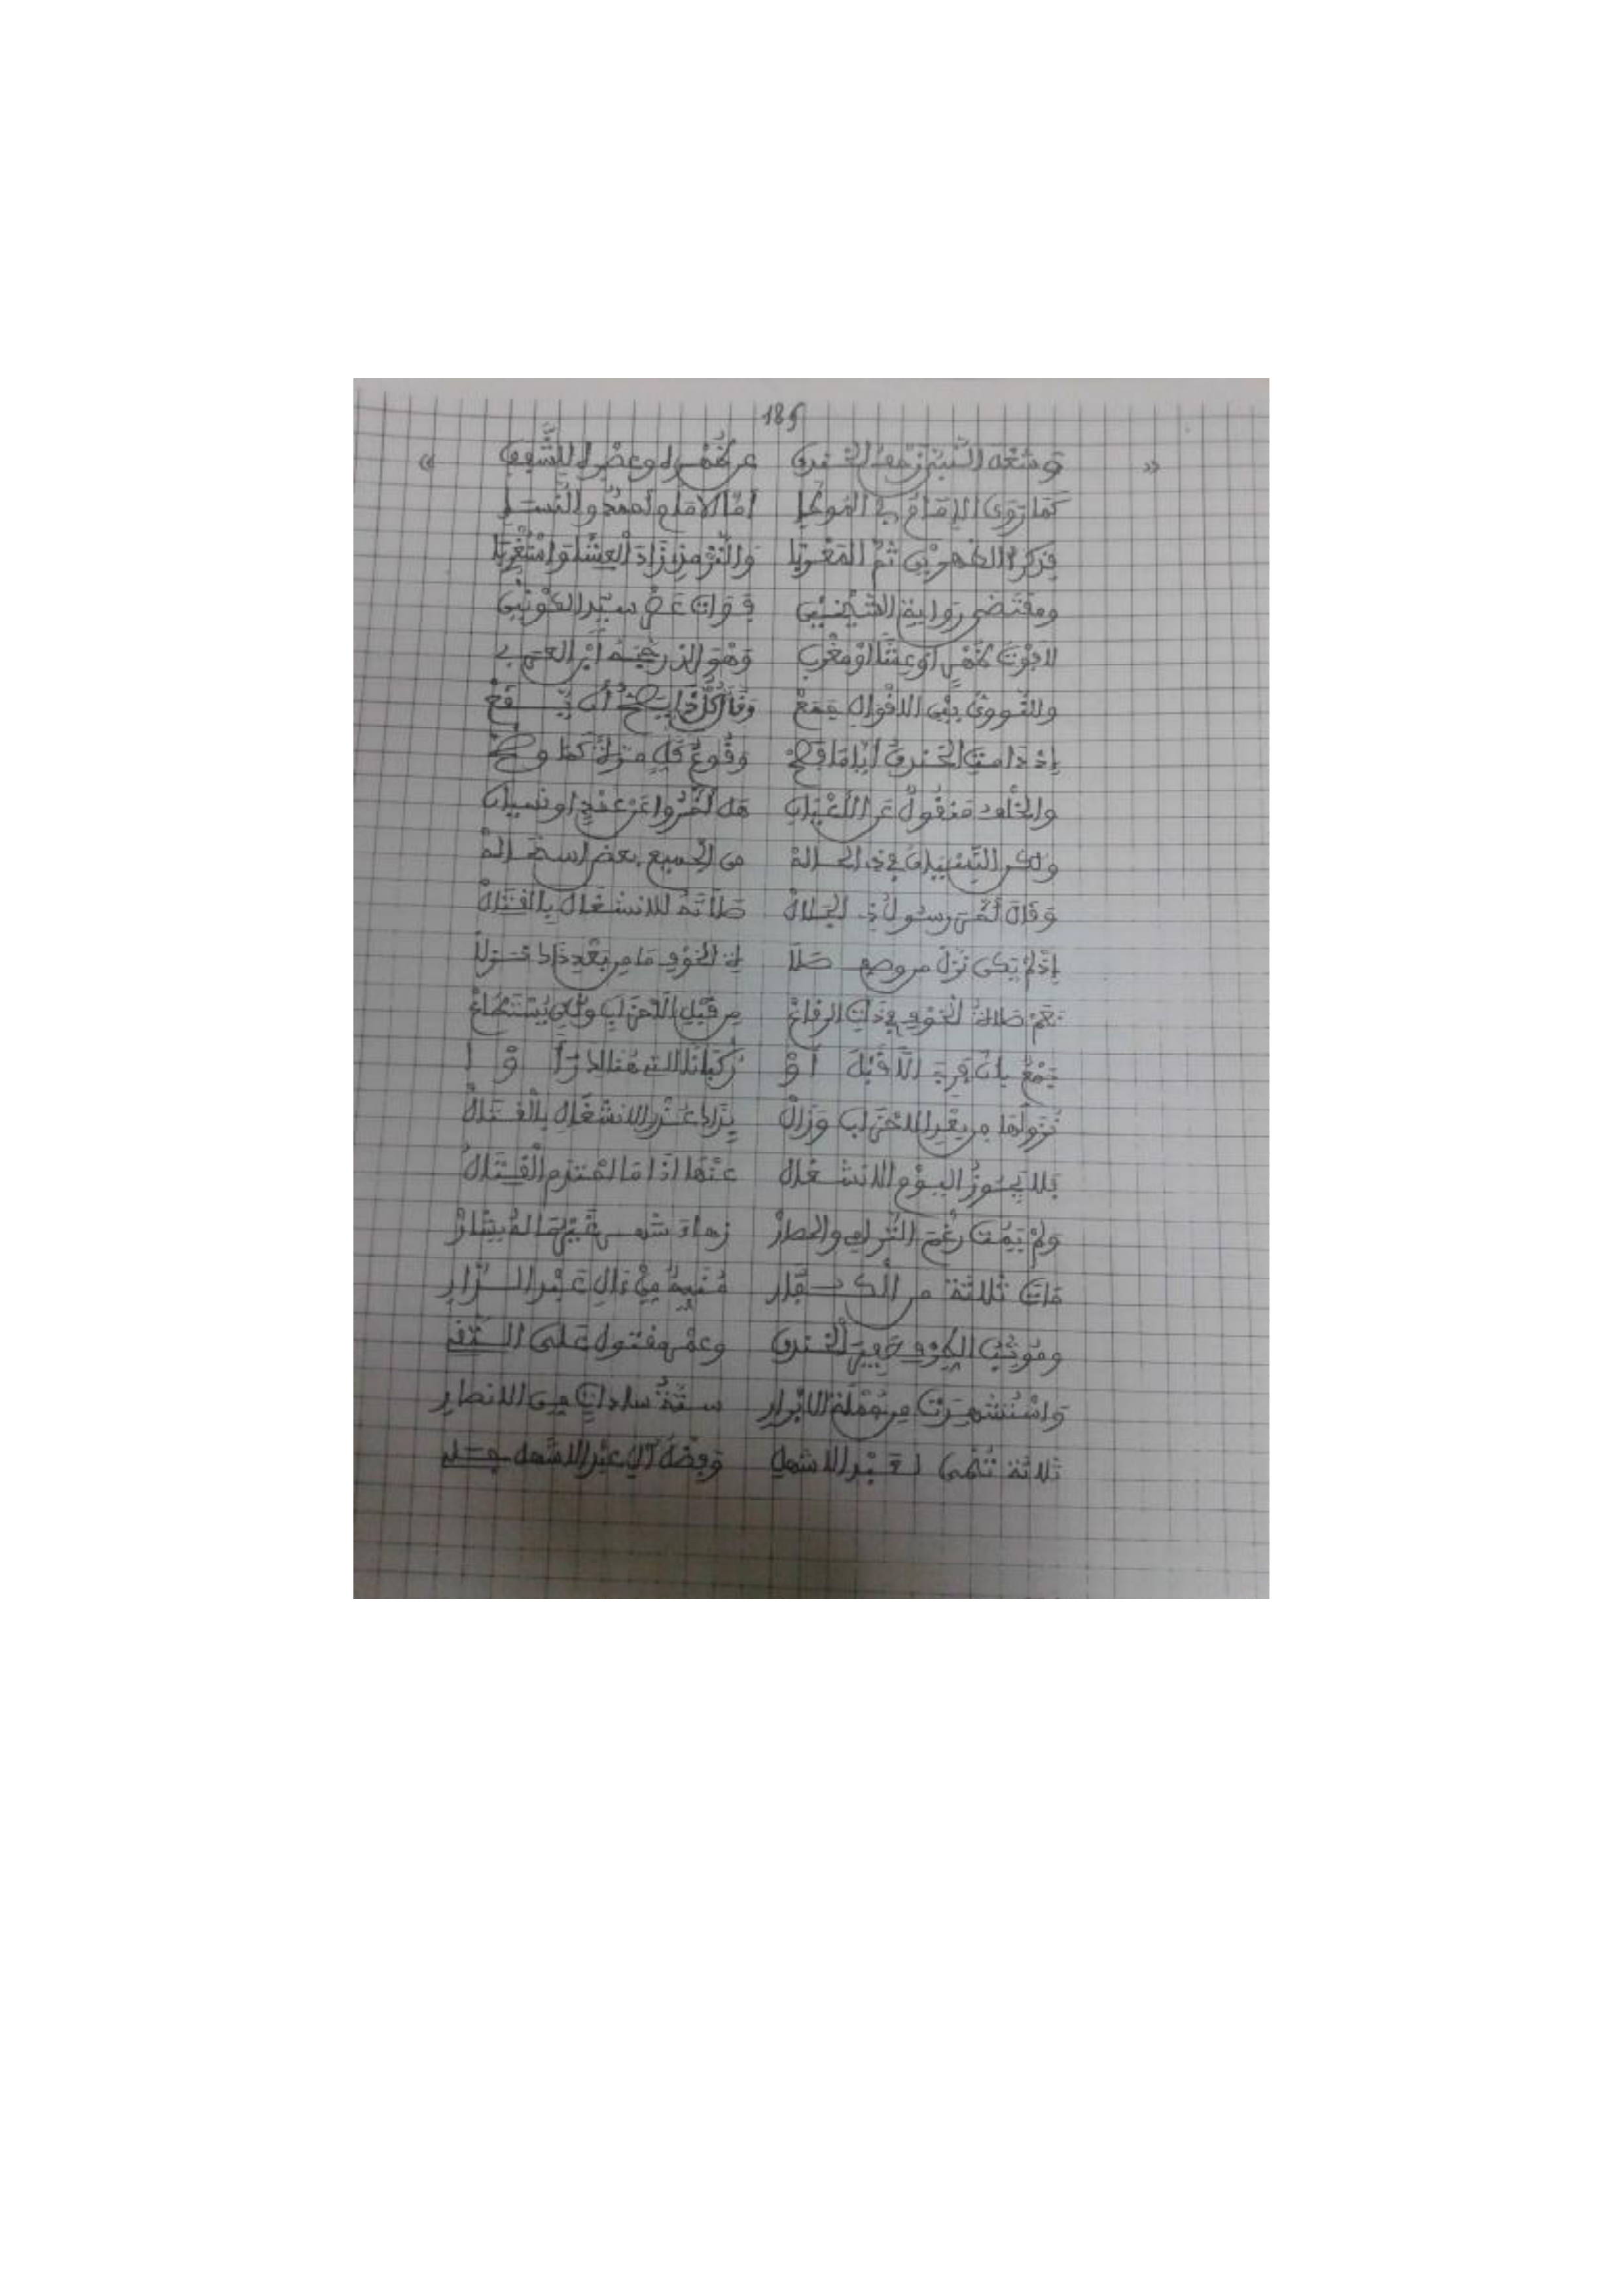 185
« وشغل النبي زحف الخندق عن ظهر او عصر او للشفق »
كما روى الإمام في الموطا أما الإمام أحمد والنسا
فذكرا الظهرين ثم المغربا والترمذي زاد العشا واستغربا
ومقتضى رواية الشيخين فوات عصر سيد الكونين
لا فوت ظهر أو عشا أو مغرب وهو الذي رجحه ابن العربي
وللنووي بين الاقوال جمع وقال كل ذا يصح أن يقع
إذ دامت الخندق أياما فصح وقوع كل مرة كما وضح
والخلف منقول عن الأعيان هل أخروا عن عمد او نسيان
ولكن النسيان في ذي الحاله من الجميع بعض استحاله
وقال أخر رسول ذي الجلال صلاته للانشغال بالقتال
إذ لم يكن نزل من وصف صلا ة الخوف ما من بعد ذاك نزلا
نعم صلاة الخوف في ذات الرقاع من قبل الاحزاب ولكن يستطاع
جمع بأن فرية الا قبل أو ركبانا اللت هنا لا رأوا
نزولها من بعد الاحزاب وزال بزاك عذر الانشغال بالقتال
فلا يجوز اليوم الانشغال عنها اذا ما احتدم القتال
ولم يمت رغم النزال والحصار زهاء شهر غير ما له يشار
مات ثلاثة من الكفار منبه من ءال عبد الدار
ونوفل الكزوف جيفة الخندق وعمرو مقتول على التقى
واستشهدت من جملة الابرار ستة سادات من الانصار
ثلاثة تنمى لعبد الاشهل وفضل آل عبد الاشهل جلي